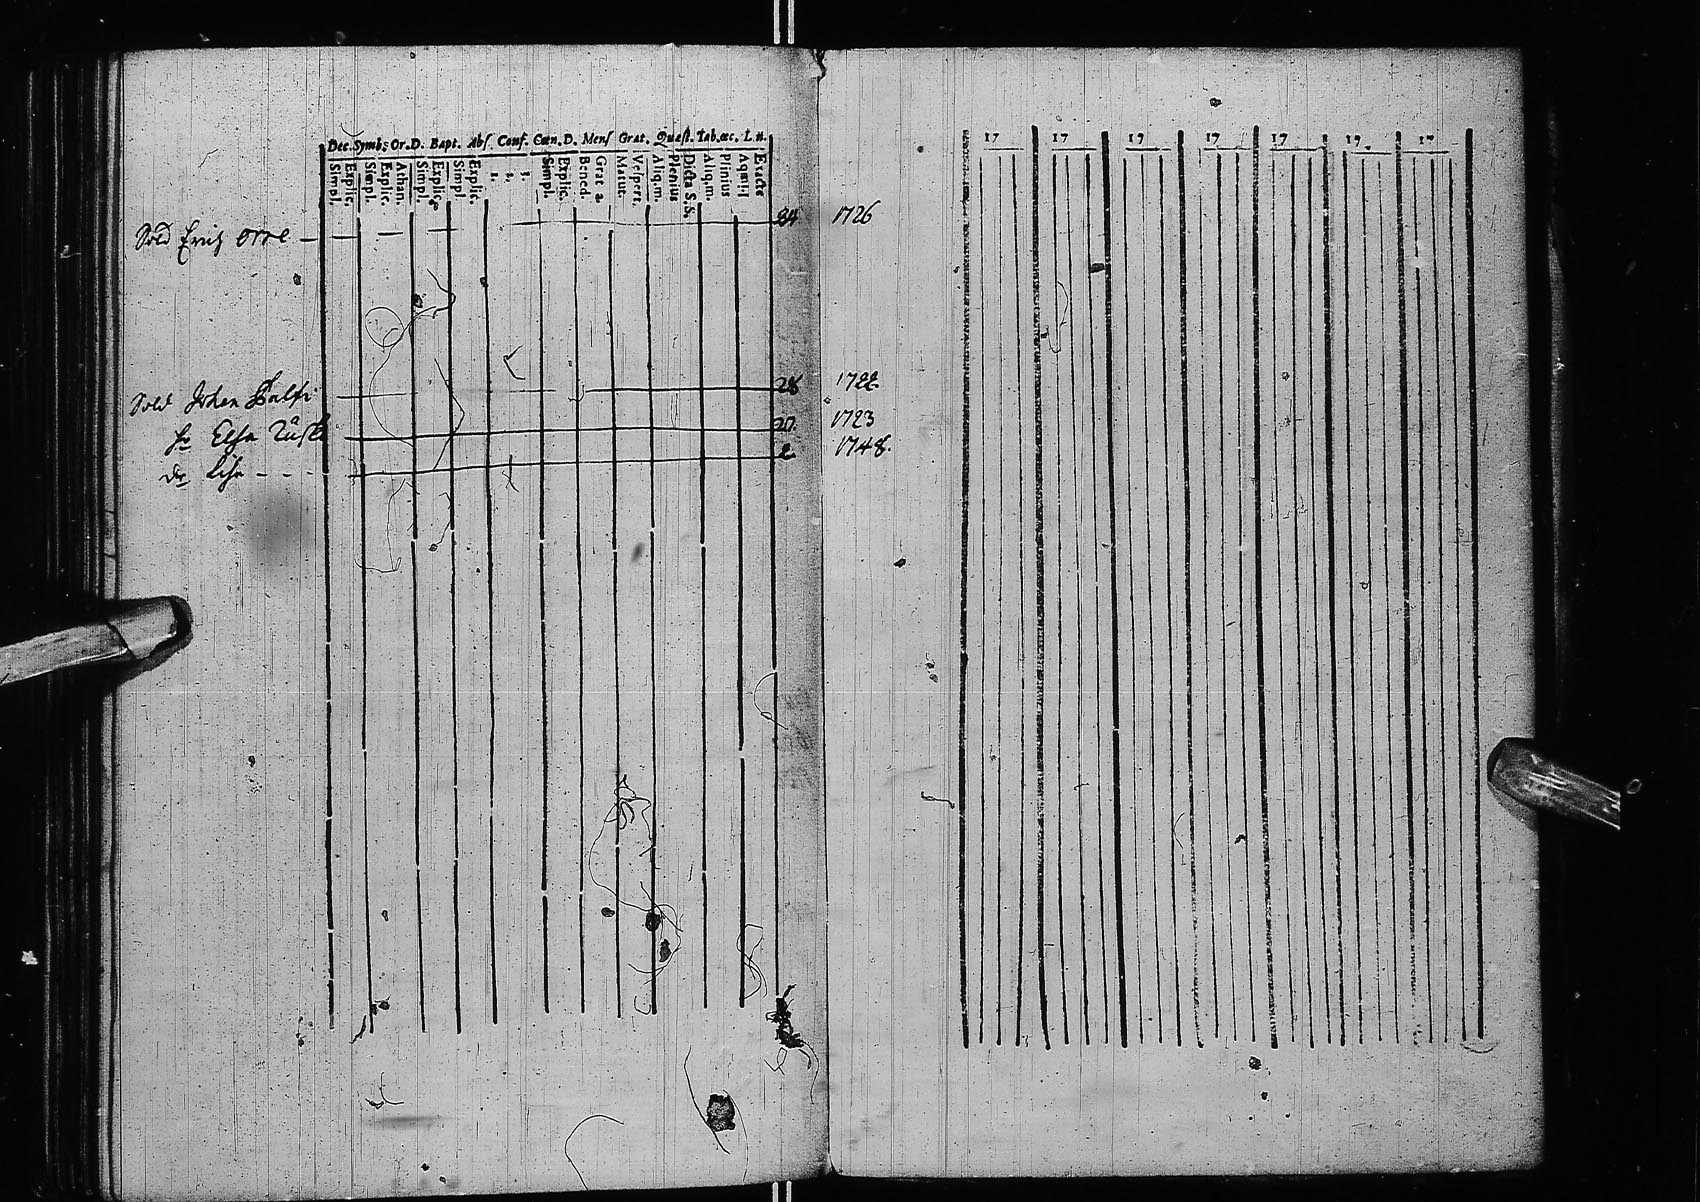 Dec. Symb: Or. D. Bapt. Abſ. Conf. Cœn. D. Menſ Grat. Quæſt. Tab. œc. L. n.
Simpl. Explic. Simpl. Explic. Athan. Simpl. Explic. Simpl. Explic. 1. 2. 3. Simpl. Explic. Bened. Grat a. Matut. Veſpert. Aliq. m. Plenius Dicta S. S. Aliq. m. Plinius Exacte
Sold Erich Orre 84 1726
Sold Johan 28 1722
hu Elsa 27 1723
dr Lisa 2 1748.
17 17 17 17 17 17 17